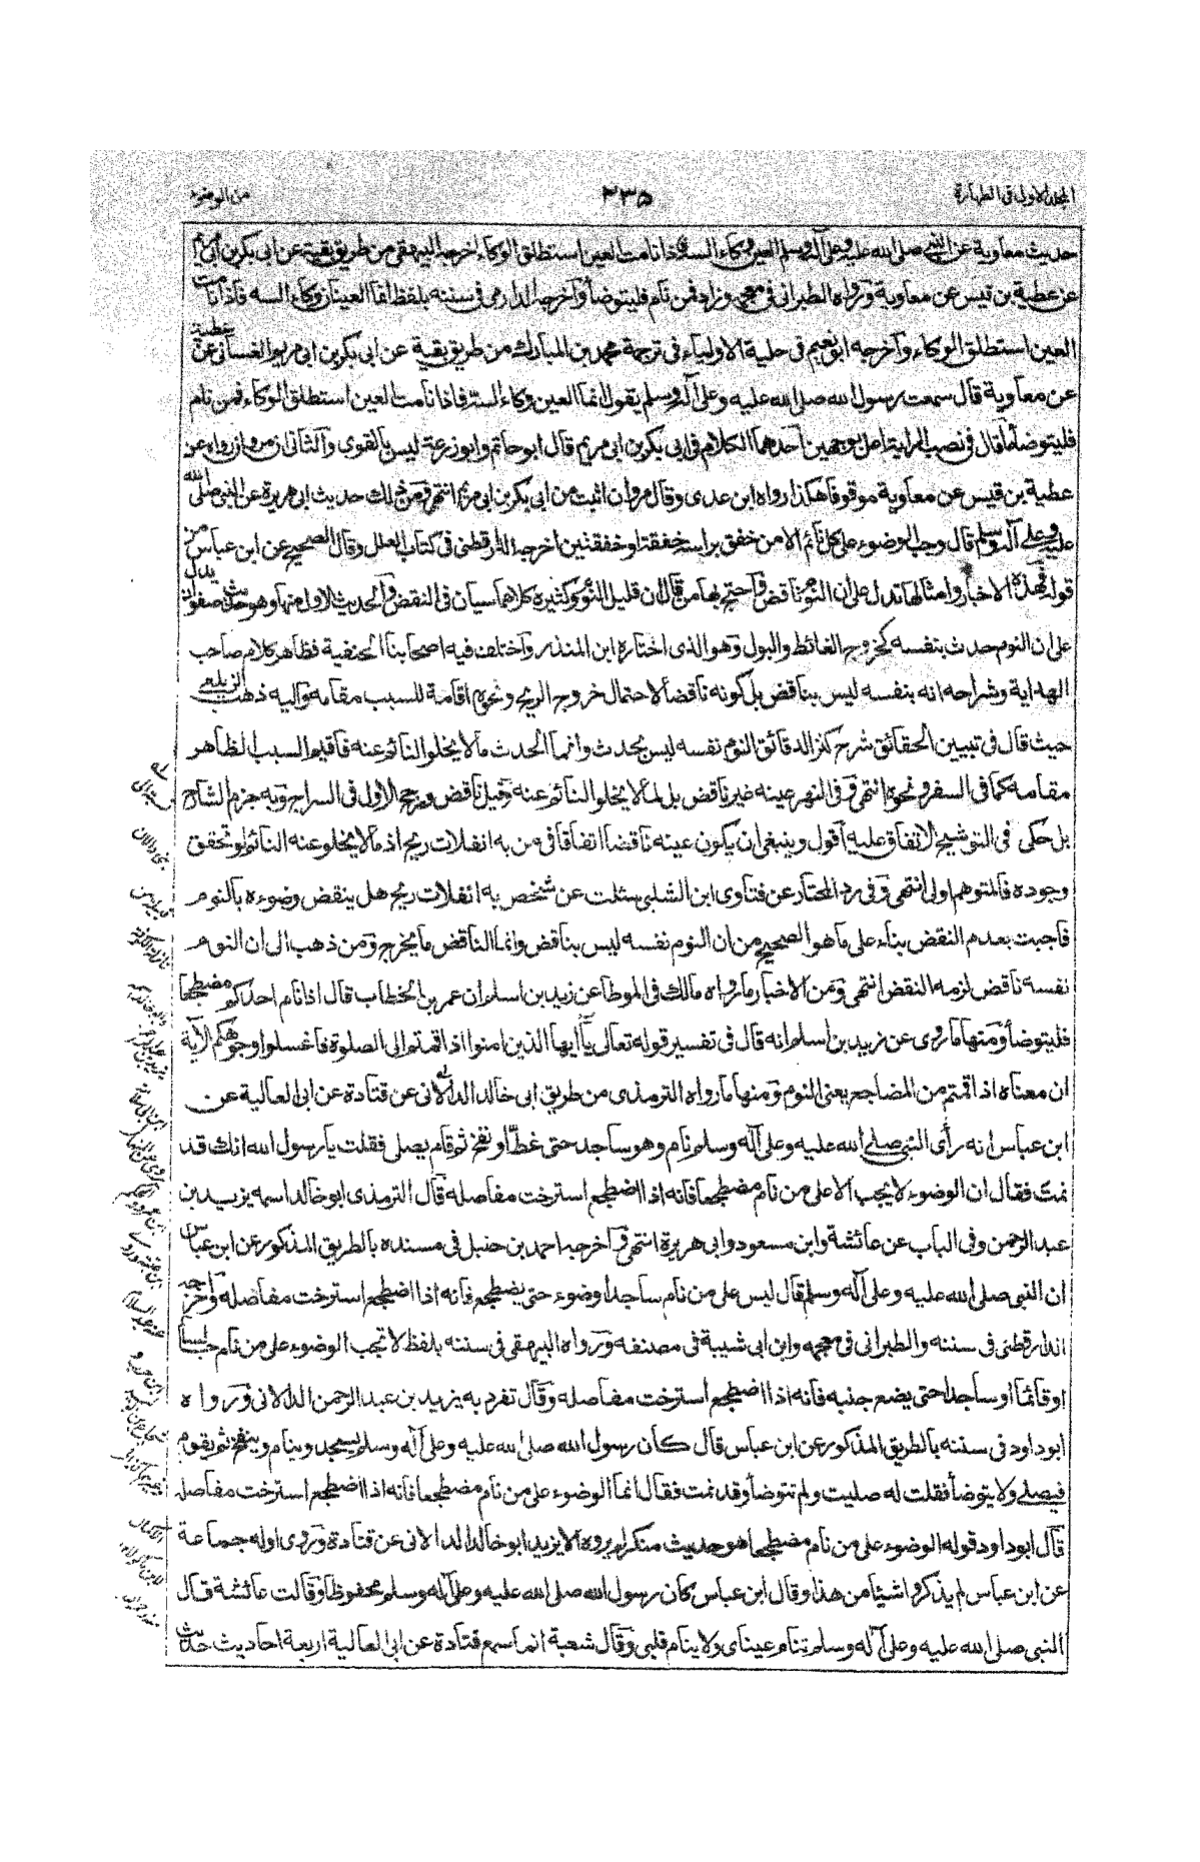 المجلد الاول فی الطهارة
۲۳۵
من الوضوء
حديث معاوية عن النبي صلى الله عليه وعلى آله وسلم العين وكاء السه فاذا نامت العين استطلق الوكاء اخرجه البيهقى من طريق بقية عن ابى بكر بن ابى مريم
عن عطية بن قيس عن معاوية ورواه الطبرانى فى معجمه وزاد فمن نام فليتوضأ وآخرجه الدارمى فى سننه بلفظ انما العينان وكاء السه فاذا نامت
العين استطلق الوكاء وآخرجه ابو نعيم فى حلية الاولياء فى ترجمة محمد بن المبارك من طريق بقية عن ابى بكر بن ابى مريم الغسانى عن عطية
عن معاوية قال سمعت رسول الله صلى الله عليه وعلى آله وسلم يقول انما العين وكاء السه فاذا نامت العين استطلق الوكاء فمن نام
فليتوضأ قال فى نصب الراية اعل بوجهين احدهما الكلام فى ابى بكر بن ابى مريم قال ابو حاتم وابو زرعة ليس بالقوى والثانى ان مروان رواه عن
عطية بن قيس عن معاوية موقوفا هكذا رواه ابن عدى وقال مروان اثبت من ابى بكر بن ابى مريم انتهى ومن ذلك حديث ابى هريرة عن النبى صلى الله
عليه وعلى آله وسلم قال وجب الوضوء على كل نائم الا من خفق براسه خفقة او خفقتين اخرجه الدارقطنى فى كتاب العلل وقال الصحيح عن ابن عباس من
قوله فهذه الاخبار وامثالها تدل على ان النوم ناقض واحتج بها من قال ان قليل النوم وكثيره كلاهما سيان فى النقض والحديث الاول منها وهو حديث صفوان يدل
على ان النوم حدث بنفسه كخروج الغائط والبول وهو الذى اختاره ابن المنذر واختلف فيه اصحابنا الحنفية فظاهر كلام صاحب
الهداية وشراحه انه بنفسه ليس بناقض بل كونه ناقضا لاحتمال خروج الريح ونحوه اقامة للسبب مقامه وآليه ذهب الزيلعى
حيث قال فى تبيين الحقائق شرح كنز الدقائق النوم نفسه ليس بحدث وانما الحدث ما لا يخلو النائم عنه فاقيم السبب الظاهر
مقامه كما فى السفر ونحوه انتهى وفى النهر عينه غير ناقض بل لما لا يخلو النائم عنه وقيل ناقض ورجح الاول فى السراج وبه جزم الشارح
بل حكى فى التوشيح الاتفاق عليه اقول وينبغى ان يكون عينه ناقضا اتفاقا فى من به انفلات ريح اذ ما لا يخلو عنه النائم لو تحقق
وجوده فالمتوهم اولى انتهى وفى رد المحتار عن فتاوى ابن الشلبى سئلت عن شخص به انفلات ريح هل ينقض وضوءه بالنوم
فاجبت بعدم النقض بناء على ما هو الصحيح من ان النوم نفسه ليس بناقض وانما الناقض ما يخرج ومن ذهب الى ان النوم
نفسه ناقض لزمه النقض انتهى ومن الاخبار ما رواه مالك فى الموطا عن زيد بن اسلم ان عمر بن الخطاب قال اذا نام احدكم مضطجعا
فليتوضأ ومنها ما روى عن زيد بن اسلم انه قال فى تفسير قوله تعالى يآ ايها الذين امنوا اذا قمتم الى الصلوة فاغسلوا وجوهكم الآية
ان معناه اذا قمتم من المضاجع يعنى النوم ومنها ما رواه الترمذى من طريق ابى خالد الدالانى عن قتادة عن ابى العالية عن
ابن عباس انه رأى النبى صلى الله عليه وعلى آله وسلم نام وهو ساجد حتى غطّ او نفخ ثم قام يصلى فقلت يا رسول الله انك قد
نمت فقال ان الوضوء لا يجب الا على من نام مضطجعا فانه اذا اضطجع استرخت مفاصله قال الترمذى ابو خالد اسمه يزيد بن
عبد الرحمن وفى الباب عن عائشة وابن مسعود وابى هريرة انتهى وآخرجه احمد بن حنبل فى مسنده بالطريق المذكور عن ابن عباس
ان النبى صلى الله عليه وعلى آله وسلم قال ليس على من نام ساجدا وضوء حتى يضطجع فانه اذا اضطجع استرخت مفاصله واخرجه
الدارقطنى فى سننه والطبرانى فى معجمه وابن ابى شيبة فى مصنفه ورواه البيهقى فى سننه بلفظ لا تجب الوضوء على من نام جالسا
او قائما او ساجدا حتى يضع جنبه فانه اذا اضطجع استرخت مفاصله وقال تفرد به يزيد بن عبد الرحمن الدالانى ورواه
ابو داود فى سننه بالطريق المذكور عن ابن عباس قال كان رسول الله صلى الله عليه وعلى آله وسلم يسجد وينام وينفخ ثم يقوم
فيصلى ولا يتوضأ فقلت له صليت ولم تتوضأ وقد نمت فقال انما الوضوء على من نام مضطجعا فانه اذا اضطجع استرخت مفاصله
قال ابو داود قوله الوضوء على من نام مضطجعا هو حديث منكر لم يروه الا يزيد ابو خالد الدالانى عن قتادة وروى اوله جماعة
عن ابن عباس لم يذكروا شيئا من هذا وقال ابن عباس كان رسول الله صلى الله عليه وعلى آله وسلم محفوظا وقالت عائشة قال
النبى صلى الله عليه وعلى آله وسلم تنام عيناى ولا ينام قلبى وقال شعبة انما سمع قتادة عن ابى العالية اربعة احاديث حديث